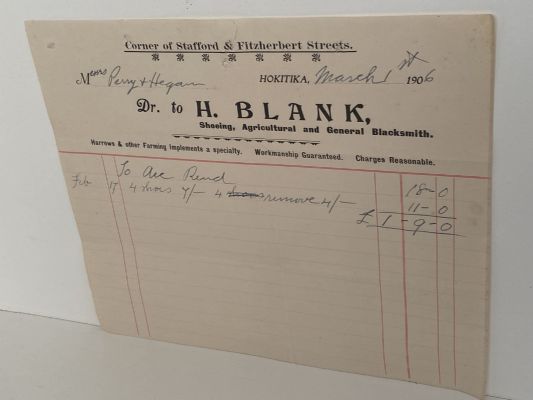 Corner of Stafford & Fitzherbert Streets.
Messrs Perry & Hegan HOKITIKA, March 1st 1906
Dr. to H. BLANK,
Shoeing, Agricultural and General Blacksmith.
Harrows & other Farming Implements a specialty. Workmanship Guaranteed. Charges Reasonable.
To Acc Rend 18-0
Feb 17 4 shoes 7/- 4 remove 4/- 11-0
£1-9-0